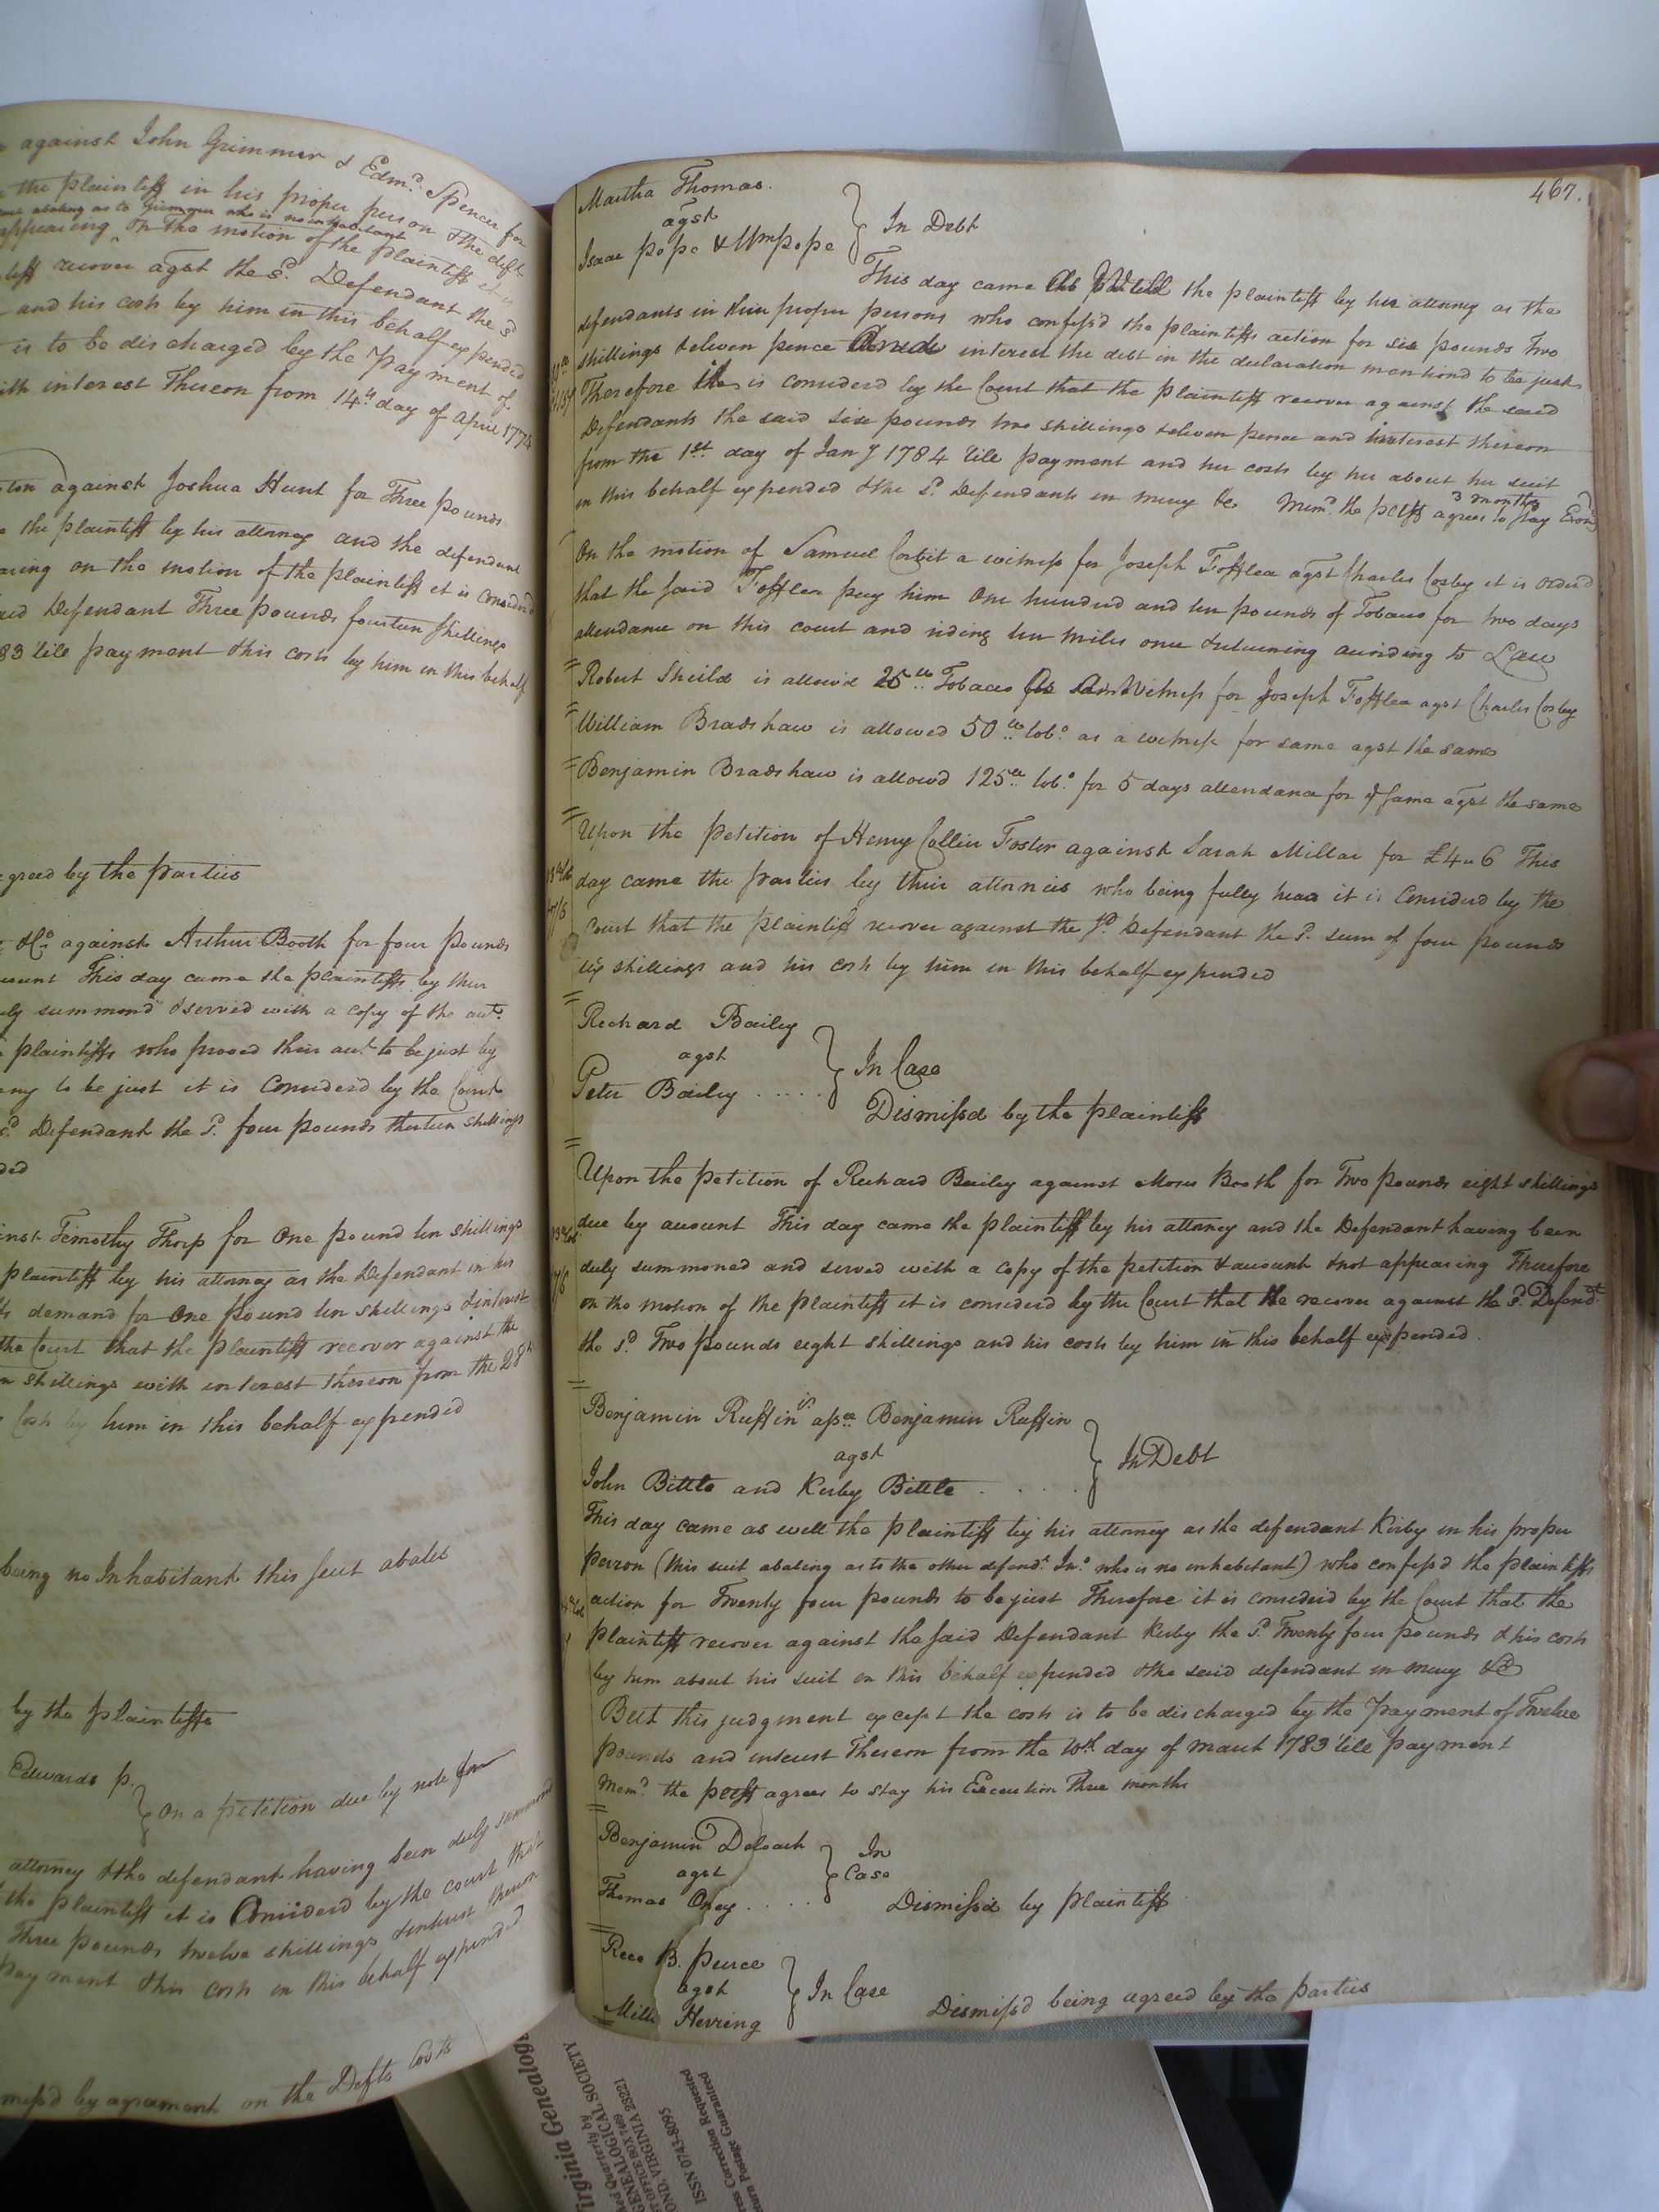 against John Grimmer & Edmd. Spencer for
the plaintiff in his proper person & the deft.
abating as to Grimmer who is no inhabitant
appearing on the motion of the plaintiff it is
recover agst the sd. Defendant the sd
and his costs by him in this behalf expended
is to be discharged by the Payment of
with interest Thereon from 14th day of April 1774
against Joshua Hunt for Three pounds
the plaintiff by his attorney and the defendant
on the motion of the plaintiff it is considerd
Defendant Three pounds fourteen shillings
83 'till payment & his costs by him in this behalf
agreed by the parties
& Co against Arthur Booth for four pounds
This day came the plaintiffs by their
summond & served with a copy of the acct.
plaintiffs who proved their acct. to be just by
to be just it is Considerd by the Court
sd. Defendant the sd. four pounds thirteen shillings
Timothy Thorp for One pound ten shillings
plaintiff by his attorney as the Defendant in his
demand for One pound ten shillings & interest
the Court that the plaintiff recover against the
shillings with interest thereon from the 28th
Costs by him in this behalf expended
being no Inhabitant this suit abates
by the plaintiffs
Edwards p.
On a petition due by note for
attorney & the defendant having been duly summond
the plaintiff it is Considerd by the court that
Three pounds twelve shillings & interest thereon
payment & his costs in this behalf expended
by agreement on the Defts Costs
467.
Martha Thomas.
agst
Isaac pope & Wm pope
In Debt
This day came the plaintiff by her attorney as the
defendants in their proper persons who confess'd the plaintiffs action for six pounds Two
shillings & eleven pence and interest the debt in the declaration mentiond to be just
Therefore it is considerd by the Court that the plaintiff recover against the said
Defendants the said six pounds two shillings & eleven pence and interest thereon
from the 1st day of Jany 1784 'till payment and her costs by her about her suit
in this behalf expended & the sd. Defendants in mercy &c Memd. the pltff agrees to stay Exon
3 months
On the motion of Samuel Corbit a witness for Joseph Tofflea agst Charles Cosby it is orderd
that the said Tofflea pay him One hundred and ten pounds of Tobacco for two days
attendance on this court and riding ten miles once & returning according to Law
Robert Sheild is allow'd 25 lb Tobacco as a Witness for Joseph Tofflea agst Charles Cosby
William Bradshaw is allowed 50 lb tobo. as a witness for same agst the same
Benjamin Bradshaw is allowd 125 lb tobo. for 5 days attendance for ye same agst the same
Upon the petition of Henry Collier Foster against Sarah Millar for £4 " 6 This
day came the parties by their attornies who being fully heard it is Considerd by the
Court that the plaintiff recover against the sd. Defendant the sd. sum of four pounds
six shillings and his costs by him in this behalf expended
Richard Bailey
agst
Peter Bailey . . . . .
In Case
Dismissd by the plaintiff
Upon the petition of Richard Bailey against Moses Booth for Two pounds eight shillings
due by account This day came the plaintiff by his attorney and the Defendant having been
duly summoned and served with a copy of the petition & account & not appearing Therefore
on the motion of the plaintiff it is considerd by the Court that he recover against the sd. Defendt.
the sd. Two pounds eight shillings and his costs by him in this behalf expended
Benjamin Ruffin asse. Benjamin Ruffin
agst
John Bittle and Kirby Bittle . . . .
In Debt
This day came as well the plaintiff by his attorney as the defendant Kirby in his proper
person (this suit abating as to the other defendt. Jno. who is no inhabitant) who confess'd the plaintiffs
action for Twenty four pounds to be just Therefore it is considerd by the Court that the
plaintiff recover against the said Defendant Kirby the sd. Twenty four pounds & his costs
by him about his suit in this behalf expended & the said defendant in mercy &c
But this judgment except the costs is to be discharged by the Payment of Twelve
pounds and interest Thereon from the 10th day of March 1783 'till payment
Memd. the pltff agrees to stay his Execution Three months
Benjamin Deloach
agst
Thomas Oney . . . .
In
Case
Dismiss'd by plaintiff
Rece B. Peirce
agst
Mills Herring
In Case
Dismissd being agreed by the parties
Virginia Genealog
Quarterly by
GENEALOGICAL SOCIETY
OFFICE BOX 7469
VIRGINIA 23221
ISSN 0743-8095
Correction Requested
Postage Guaranteed